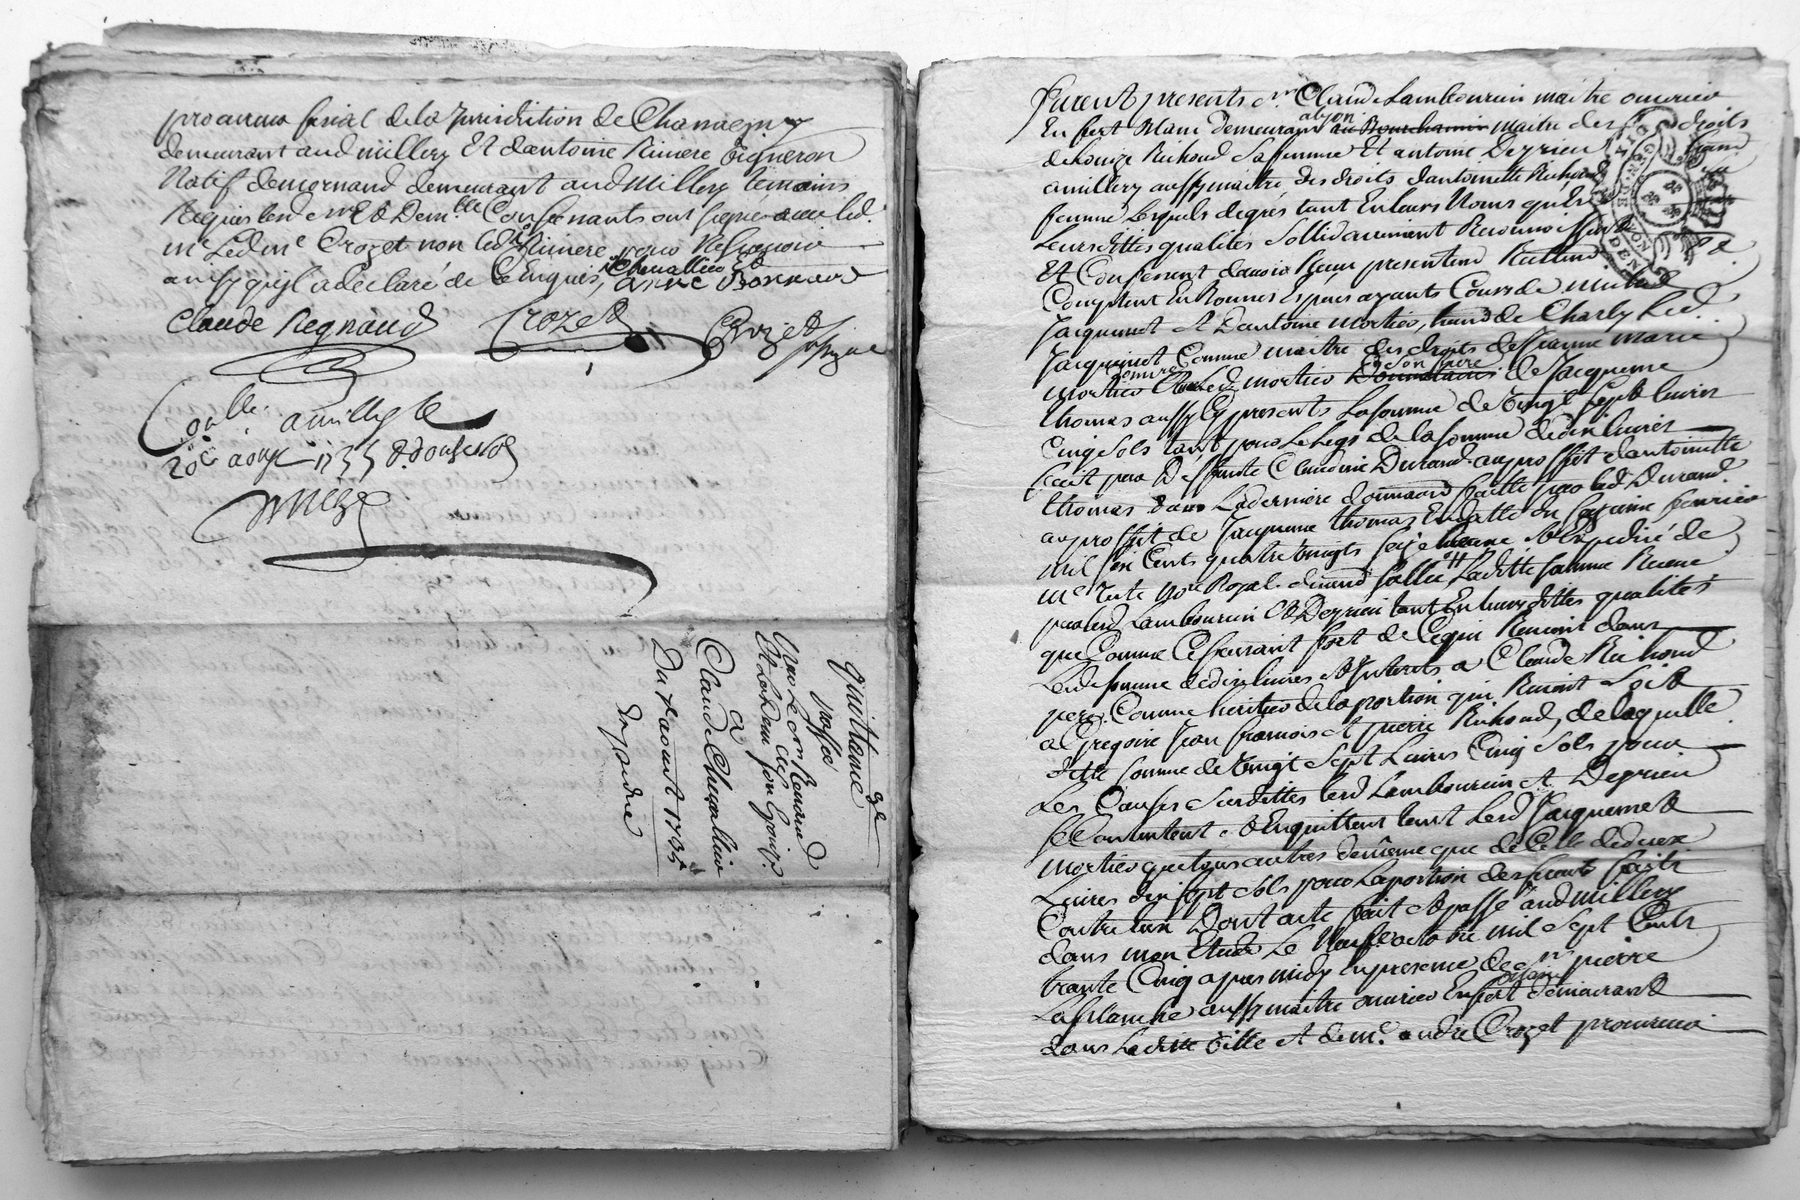 procureur fiscal de la Jurisdiction de Chanagny
demeurant aud millery Et dantoine Riviere vigneron
Natif demornand demeurant aud Millery temoins
Requis led sr Et Dem.lle Consonants ont signé avec led.
me Led me Crozet non led Riviere pour Ne sçavoir
ainsy quil a declaré de Ce Enquis, Chevallier
Claude Regnaud Crozet Crozet
Con.lle amillery le
20e aoust 1735 R. douse s
quittance
passée
par Le sr Renaud
Et La Dem son Epouse
a
Claude Chevallier
Du 7 aoust 1735
Furent presents sr Claude Lambourcin maitre ouvrier
En fert Blanc demeurant alyon au Bourchanin maitre des droits
de Louize Richoud Sa femme Et antoine Deyrieu
amillery aussy maitre des droits dantoinette Richoud
femme Lesquels degrés tant En leurs Noms qu'En
Leursdittes qualités Sollidairement Reconnoissent
Et Confessent davoir Receu presentem Reellem.
Comptant En Bonnes Especes ayants Cours de
Jacquemet Et Dantoine mortier, de Charly Led.
Jacquemet Comme maitre des droits de Jeanne Marie
mortier Led mortier son pere de Jacqueme
thomas aussy Cy presents La somme de vingt sept livres
Cinq sols tant pour Le Legs de la somme de dix livres
fait par Deffunte Claudine Durand au proffit dantoinette
thomas dans La derniere donnaon faitte par lad Durand.
au proffit de Jacqueme thomas En datte du seizieme fevrier
mil six Cents quatre vingts seize Et Expedié de
me note Royal. Laditte somme Receue
parled Lambourcin Et Deyrieu tant En leursdittes qualités
que Comme Ce faisant fort de Ce qui Revient dans
Lad somme de dix livres Et Interets a Claude Richoud
pere Comme heritier de la portion qui Revient Soit
a Gregoire Jean francois et pierre Richoud, de laquelle
ditte somme de vingt sept Livres Cinq Sols pour
Les Causes Susdittes lesd Lambourcin Et Deyrieu
se Contentent Et En quittent tant Lesd Jacquemet Et
mortier que tous autres de même que de Celle de deux
Livres dix sept sols pour La portion des fraits faits
Contre Eux Dont acte fait Et passé aud Millery
dans mon Etude Le Neuf octobre mil sept Cents
trante Cinq apres midy En presence de sr pierre
Laplanche aussy maitre ouvrier En fert blanc demeurant
dans Laditte ville Et de me. andré Crozet procureur